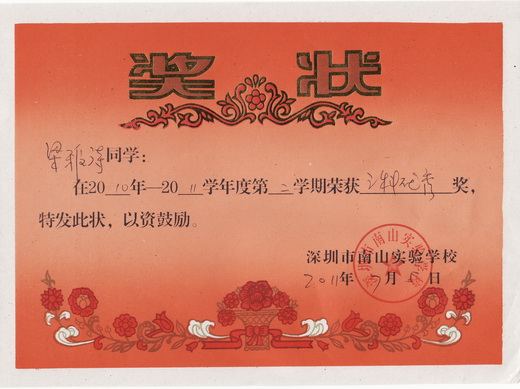 奖 状
梁雅诗同学：
在20 10 年—20 11 学年度第 二 学期荣获 三科优秀 奖，
特发此状，以资鼓励。
深圳市南山实验学校
2011年 7月 5日
深圳市南山实验学校